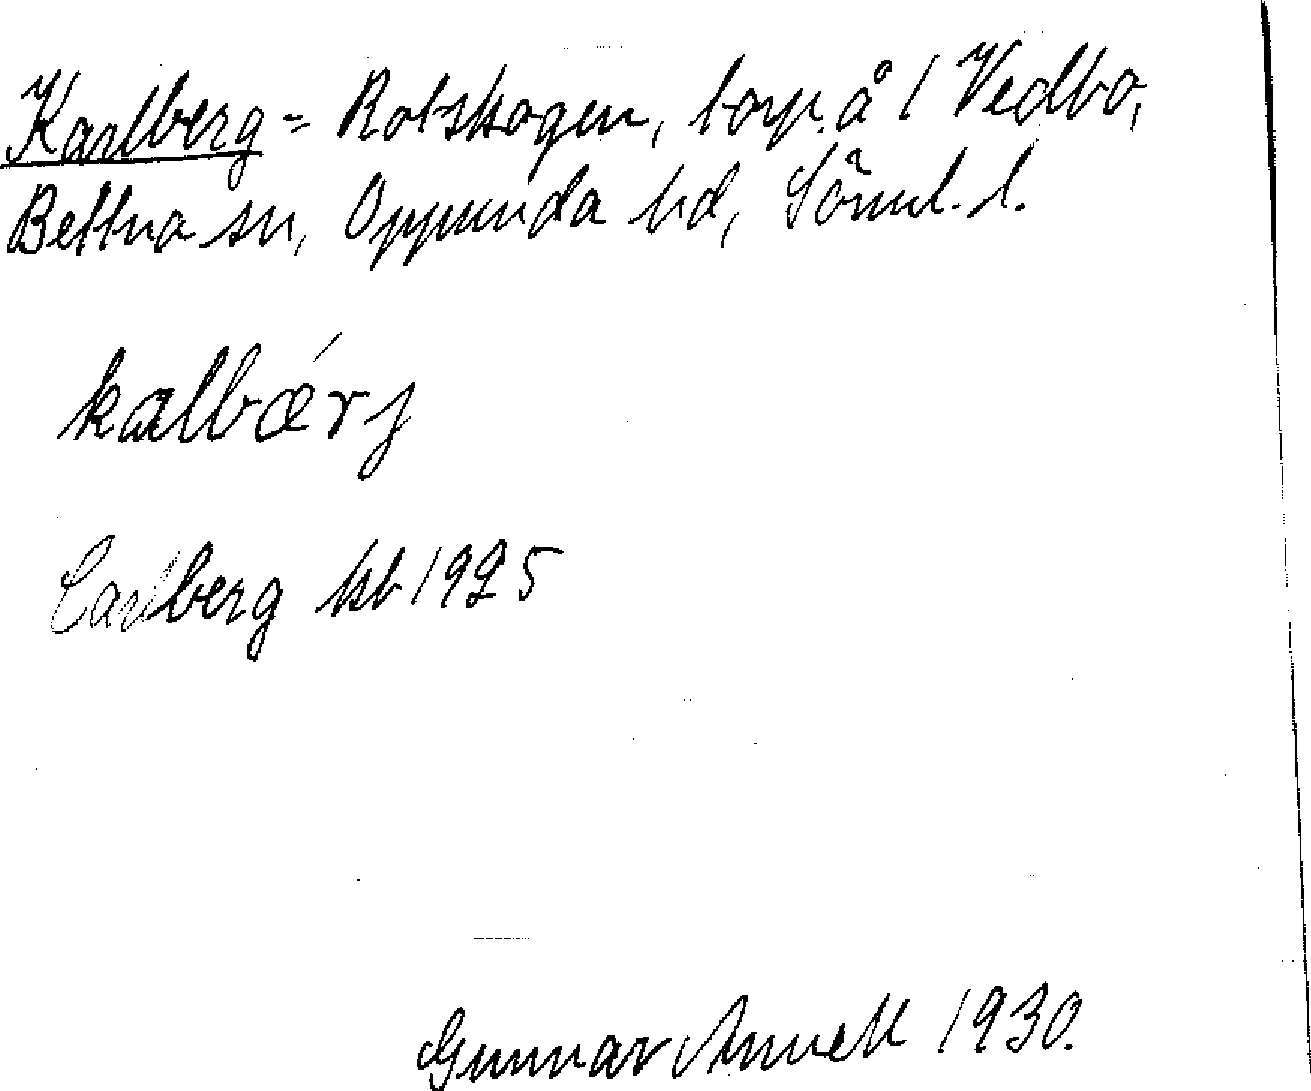 Karlberg = Rotskogen, torp å 1 Vedbo,
Bettna sn, Oppunda hd, Söml. l.
kalbǽrj
Carlberg kb 1925
Gunnar Annell 1930.